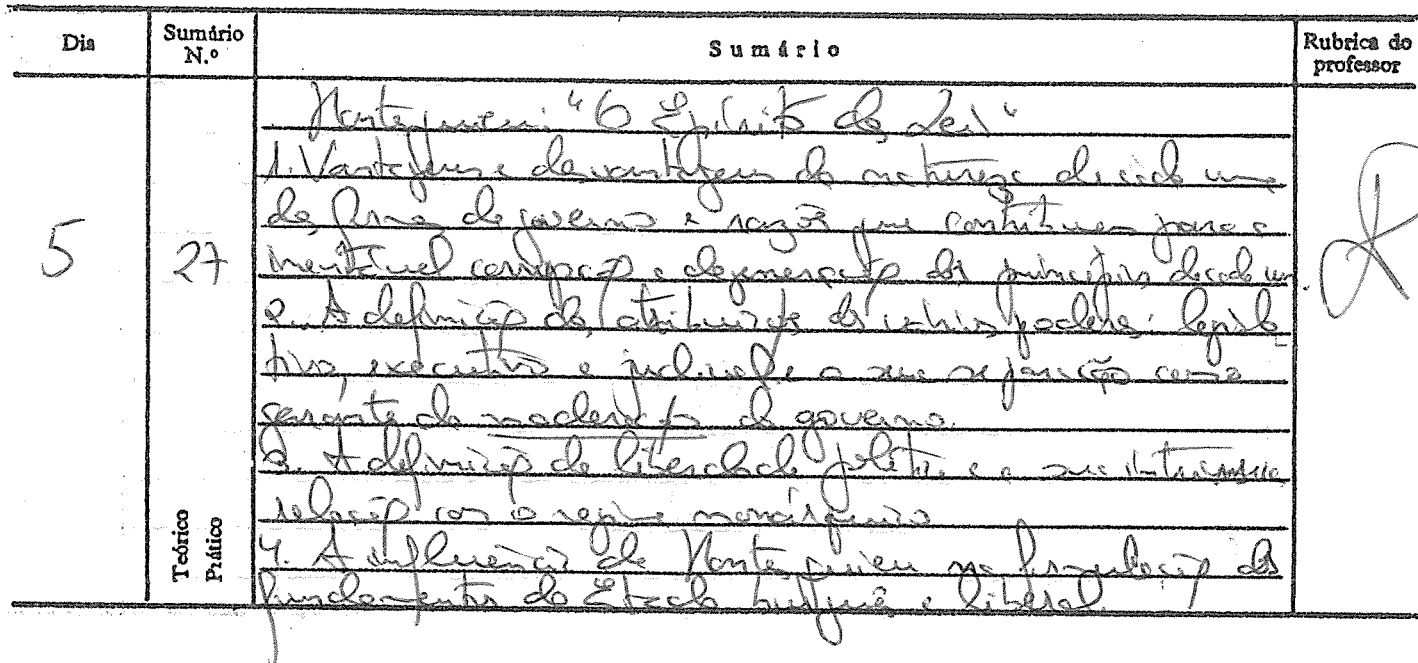 Dia
Sumário N.º
Sumário
Rubrica do professor
Montesquieu: "O Espírito das Leis"
1. Vantagens e desvantagens da natureza de cada uma
das formas de governo e razões que contribuem para a
inevitável corrupção e degeneração dos princípios de cada um
5
27
2. A definição das atribuições dos vários poderes: legisla
tivo, executivo e judicial e a sua separação como
garante da moderação do governo.
3. A definição de liberdade política e a sua intrínseca
relação com o regime monárquico
4. A influência de Montesquieu na formulação dos
fundamentos do Estado burguês e liberal.
Teórico
Prático